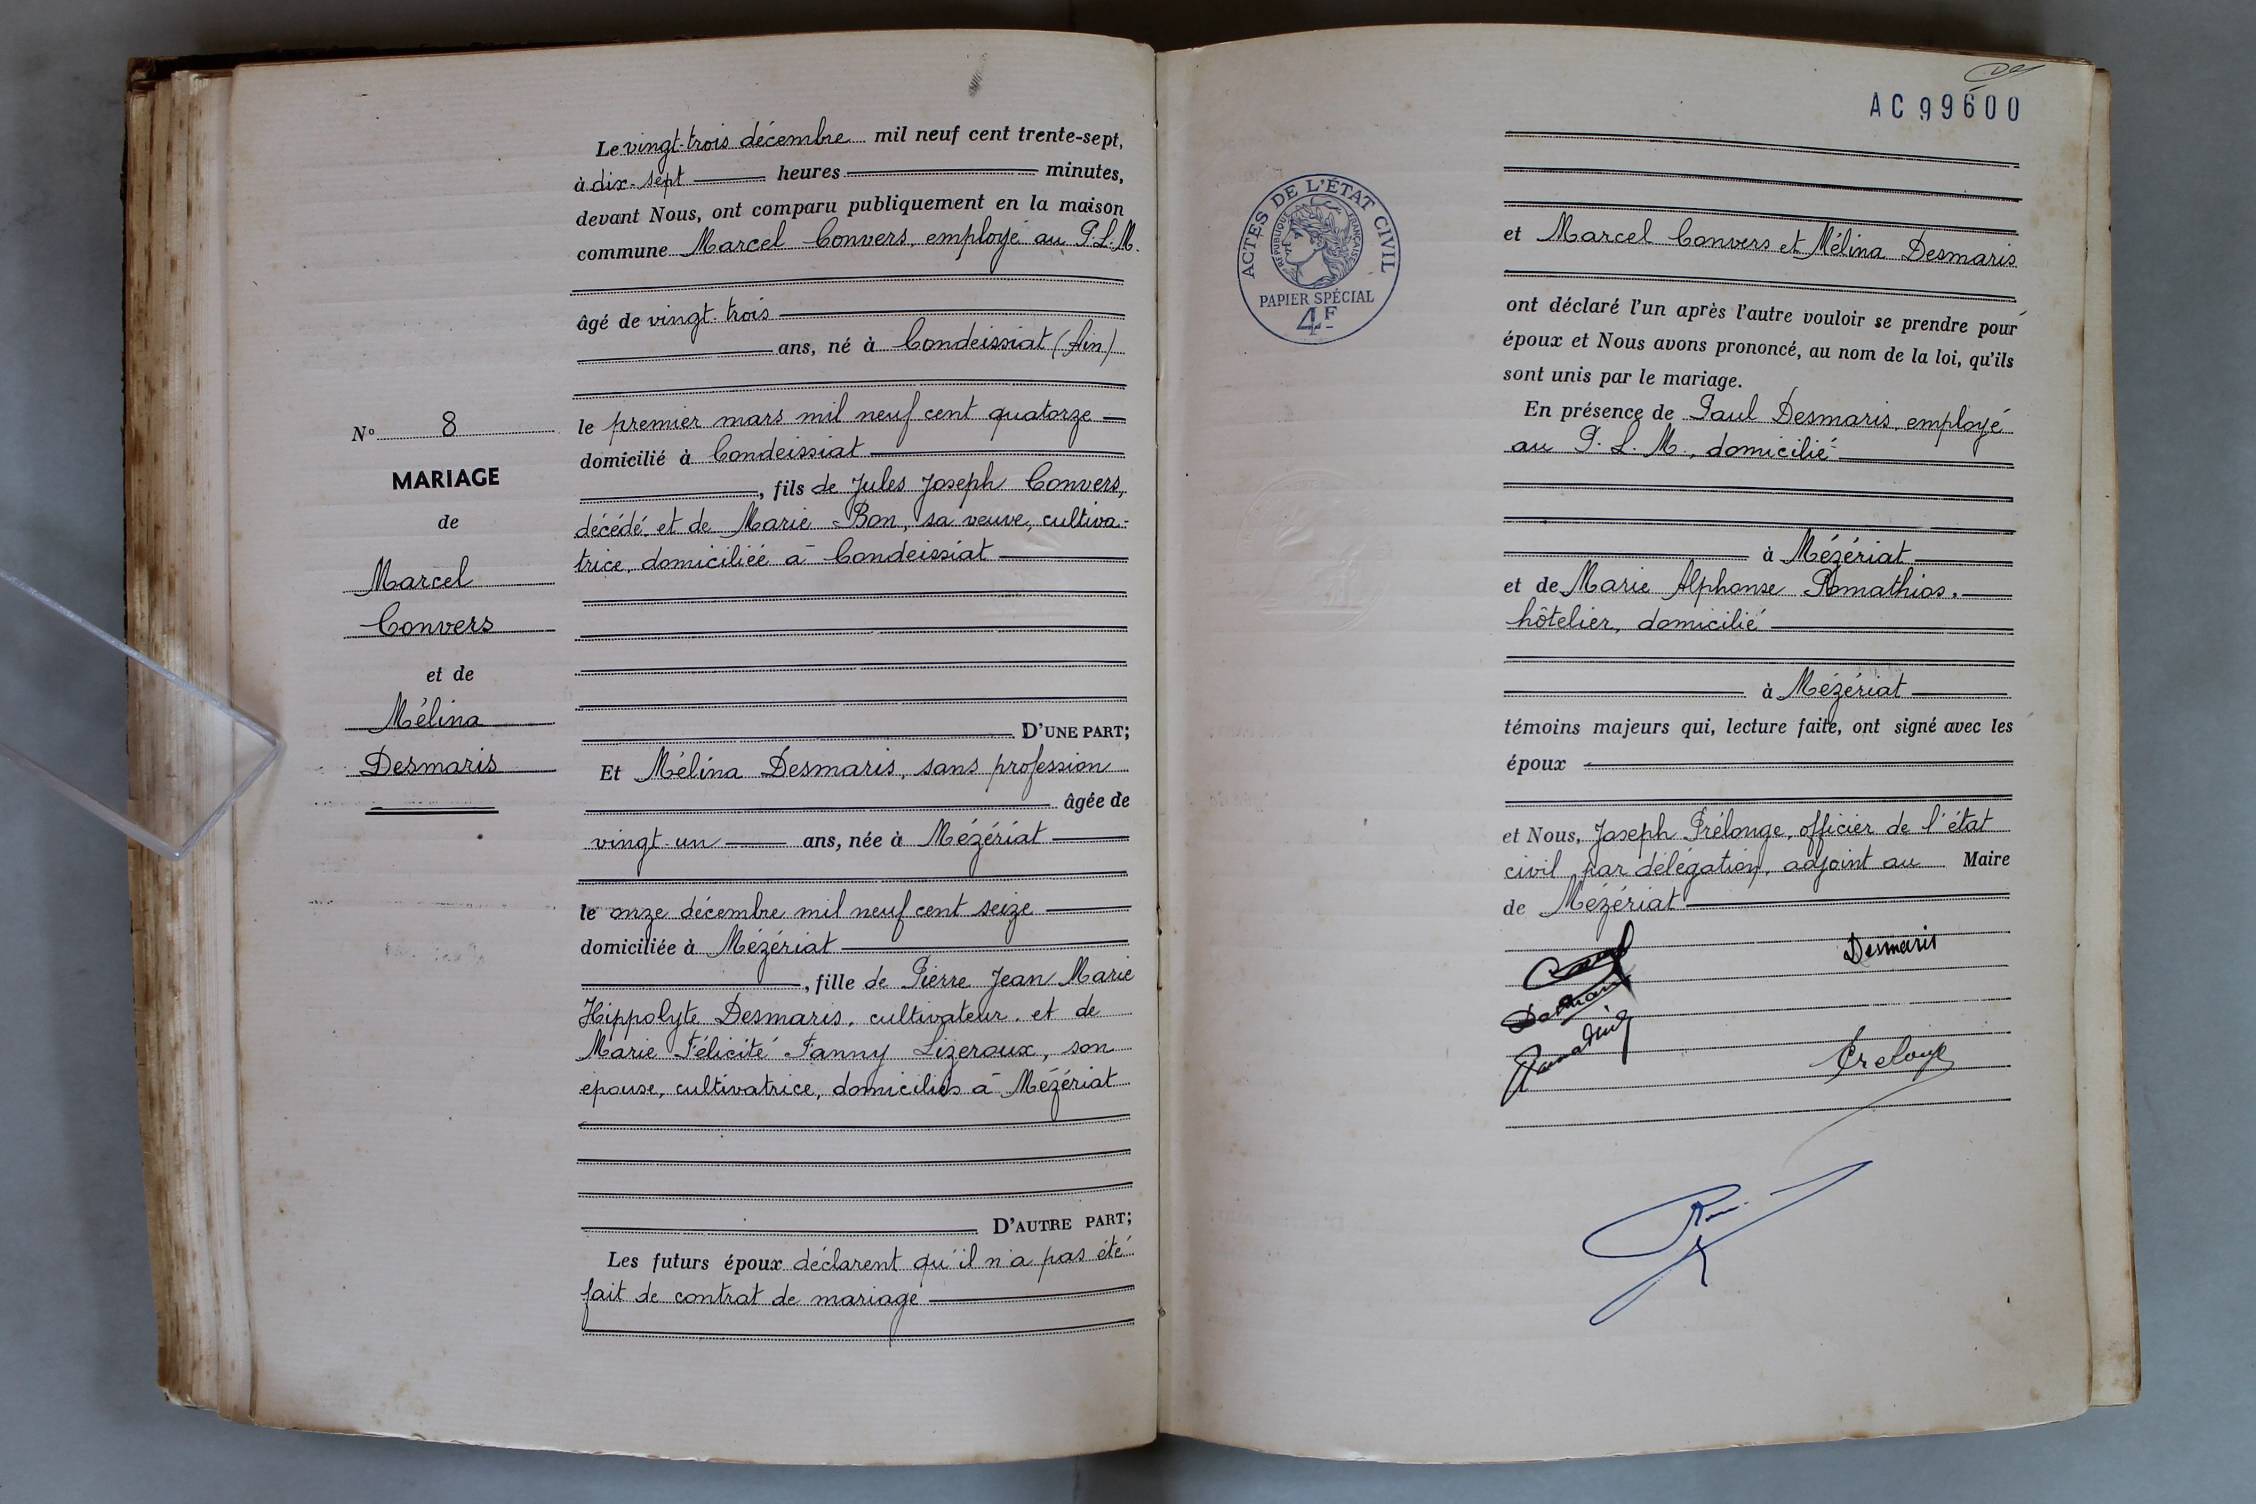 Le vingt-trois décembre mil neuf cent trente-sept,
à dix-sept heures minutes,
devant Nous, ont comparu publiquement en la maison
commune Marcel Convers, employé au P.L.M.
âgé de vingt-trois
ans, né à Condeissiat (Ain)
le premier mars mil neuf cent quatorze
domicilié à Condeissiat
, fils de Jules Joseph Convers,
décédé et de Marie Bon, sa veuve, cultiva-
trice, domiciliée à Condeissiat
D'UNE PART;
Nº 8
MARIAGE
de
Marcel
Convers
et de
Mélina
Desmaris
Et Mélina Desmaris, sans profession
âgée de
vingt-un ans, née à Mézériat
le onze décembre mil neuf cent seize
domiciliée à Mézériat
, fille de Pierre Jean Marie
Hippolyte Desmaris, cultivateur, et de
Marie Félicité Fanny Lizeroux, son
épouse, cultivatrice, domiciliés à Mézériat
D'AUTRE PART;
Les futurs époux déclarent qu'il n'a pas été
fait de contrat de mariage
AC 99600
ACTES DE L'ÉTAT CIVIL
RÉPUBLIQUE FRANÇAISE
PAPIER SPÉCIAL
4F
et Marcel Convers et Mélina Desmaris
ont déclaré l'un après l'autre vouloir se prendre pour
époux et Nous avons prononcé, au nom de la loi, qu'ils
sont unis par le mariage.
En présence de Paul Desmaris, employé
au P.L.M., domicilié
à Mézériat
et de Marie Alphonse Romathios,
hôtelier, domicilié
à Mézériat
témoins majeurs qui, lecture faite, ont signé avec les
époux
et Nous, Joseph Prélonge, officier de l'état
civil par délégation, adjoint au Maire
de Mézériat
Desmaris
Desmaris
Prelonge